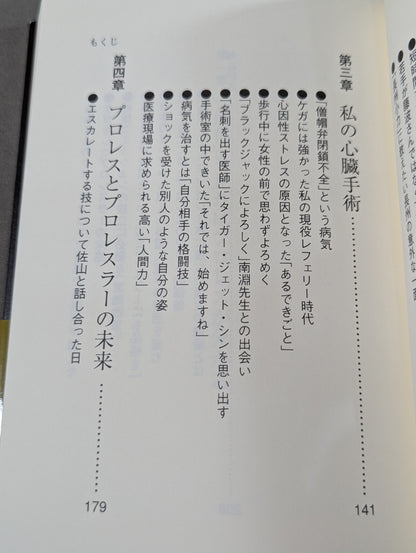 第三章 私の心臓手術…………………… 141
●「僧帽弁閉鎖不全」という病気
●ケガには強かった私の現役レフェリー時代
●心因性ストレスの原因となった「あるできごと」
●歩行中に女性の前で思わずよろめく
●『ブラックジャックによろしく』南淵先生との出会い
●「名刺を出す医師」にタイガー・ジェット・シンを思い出す
●手術室の中できいた「それでは、始めますね」
●病気を治すとは「自分相手の格闘技」
●ショックを受けた別人のような自分の姿
●医療現場に求められる高い「人間力」
第四章 プロレスとプロレスラーの未来…………………… 179
●エスカレートする技について佐山と話し合った日
もくじ